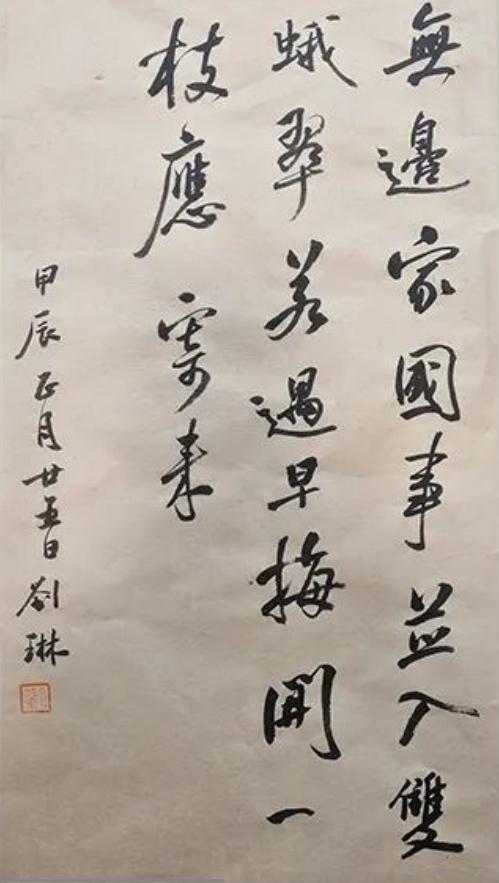 無邊家國事並入雙
蛾翠若遇早梅開一
枝應寄来
甲辰正月廿五日劉琳